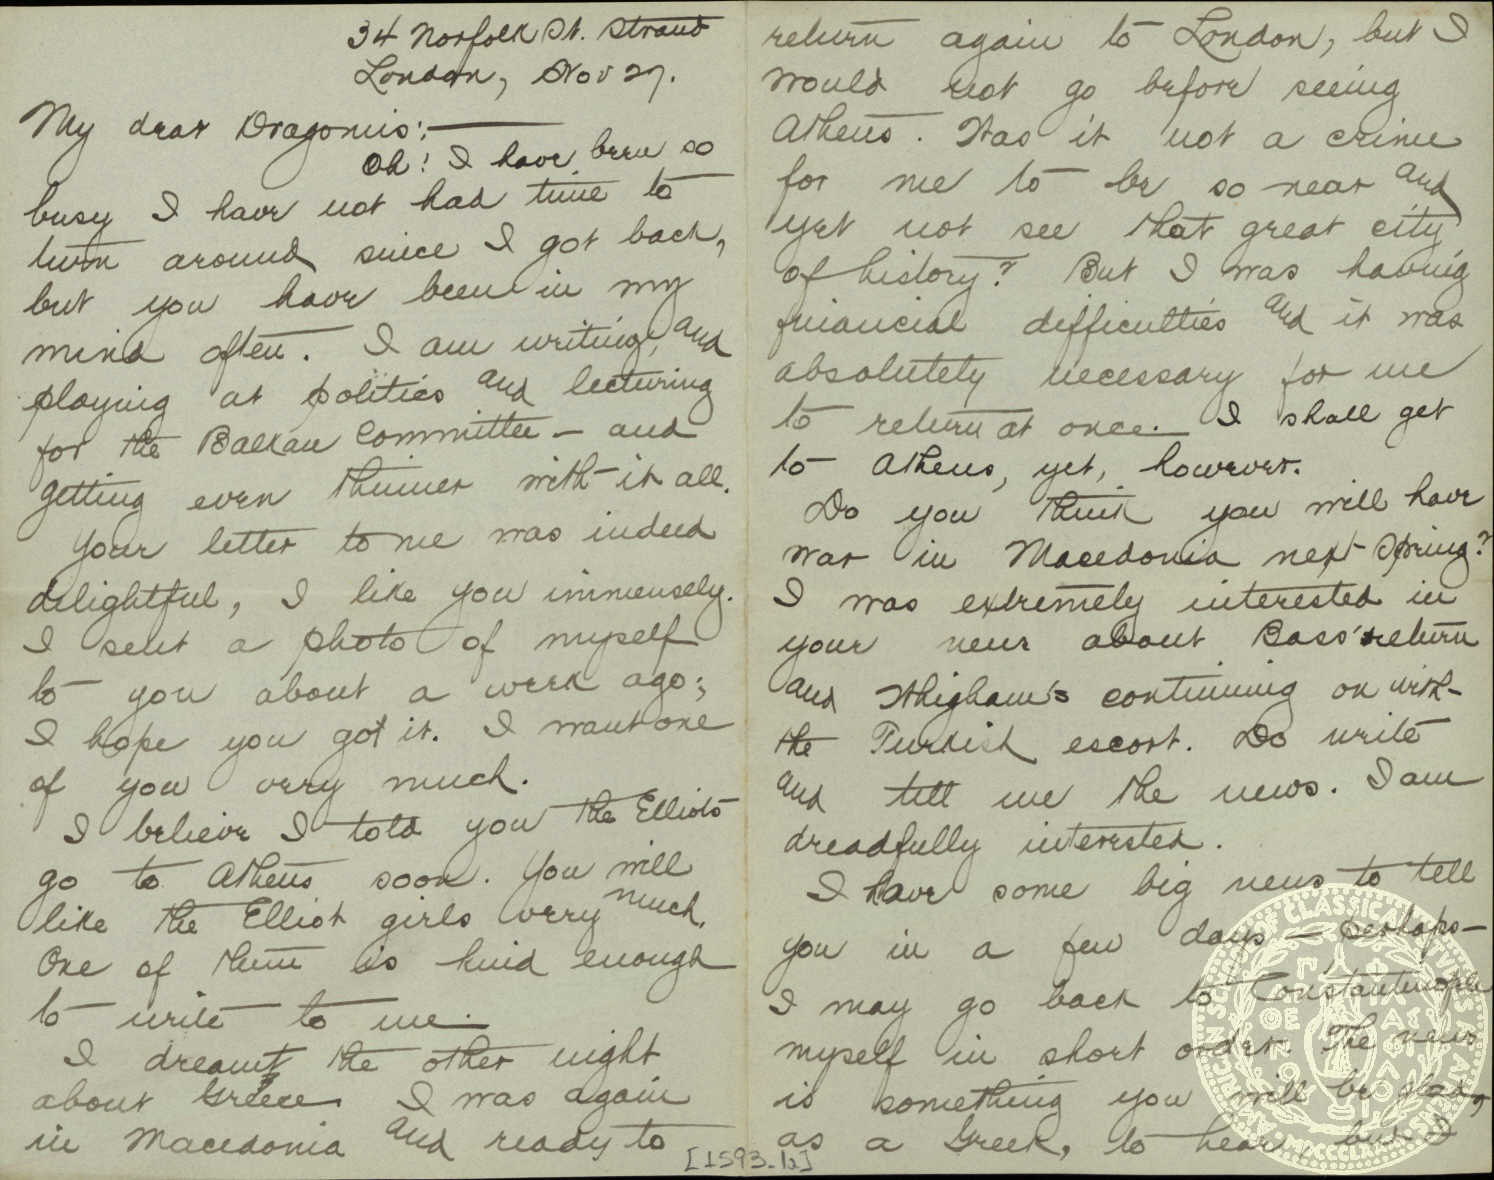 34 Norfolk St. Strand
London, Nov 27.
My dear Dragomis:—
Oh! I have been so
busy I have not had time to
turn around since I got back,
but you have been in my
mind often. I am writing, and
playing at politics and lecturing
for the Balkan Committee — and
getting even thinner with it all.
Your letter to me was indeed
delightful, I like you immensely.
I sent a photo of myself
to you about a week ago;
I hope you got it. I want one
of you very much.
I believe I told you the Elliots
go to Athens soon. You will
like the Elliot girls very much.
One of them is kind enough
to write to me.
I dreamt the other night
about Greece. I was again
in Macedonia and ready to
[1593-1a]
return again to London, but I
would not go before seeing
Athens. Was it not a crime
for me to be so near and
yet not see that great city
of history? But I was having
financial difficulties and it was
absolutely necessary for me
to return at once. I shall get
to Athens, yet, however.
Do you think you will have
war in Macedonia next Spring?
I was extremely interested in
your news about Bass' return
and Whigham's continuing on with
the Turkish escort. Do write
and tell me the news. I am
dreadfully interested.
I have some big news to tell
you in a few days — perhaps —
I may go back to Constantinople
myself in short order. The news
is something you will be glad,
as a Greek, to hear, but I